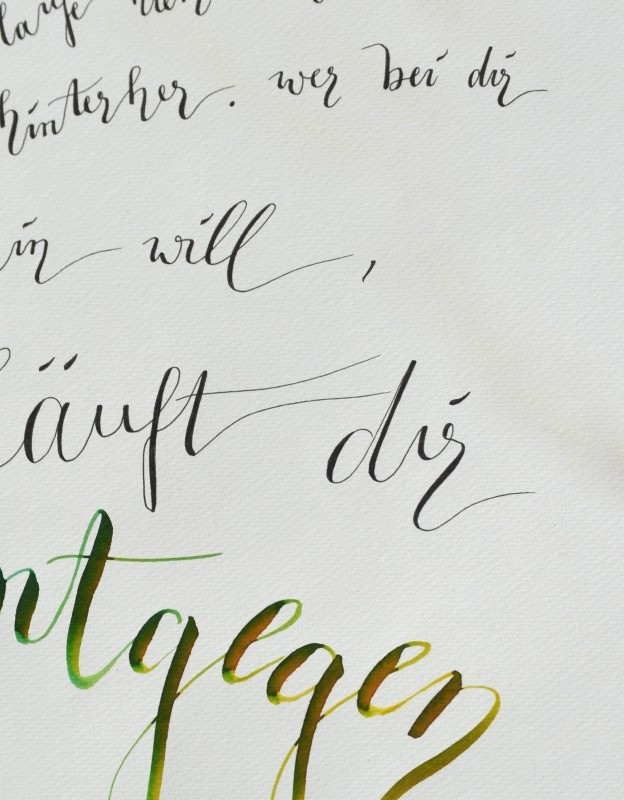 laufe
hinterher. wer bei dir
in will,
läuft dir
ntgegen